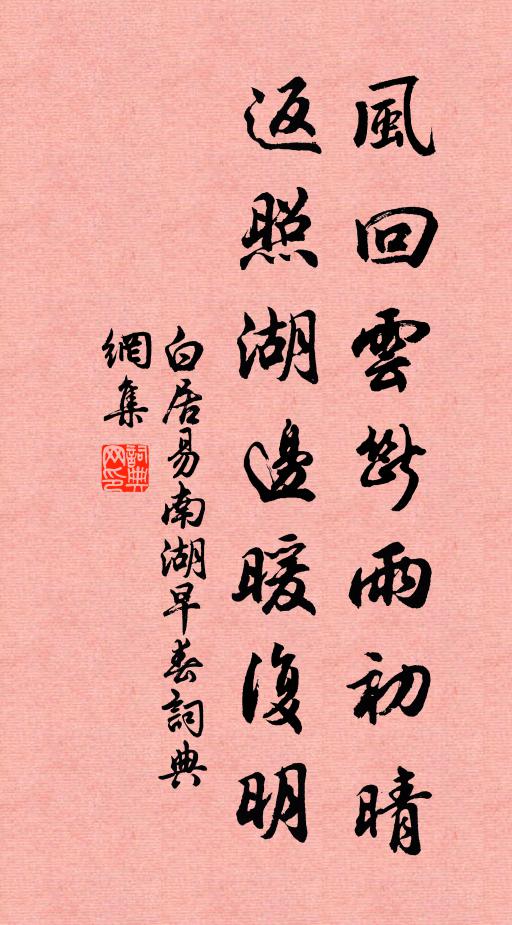 風回雲斷雨初晴
返照湖邊暖復明
白居易南湖早春詞典
網集
詞典
网印